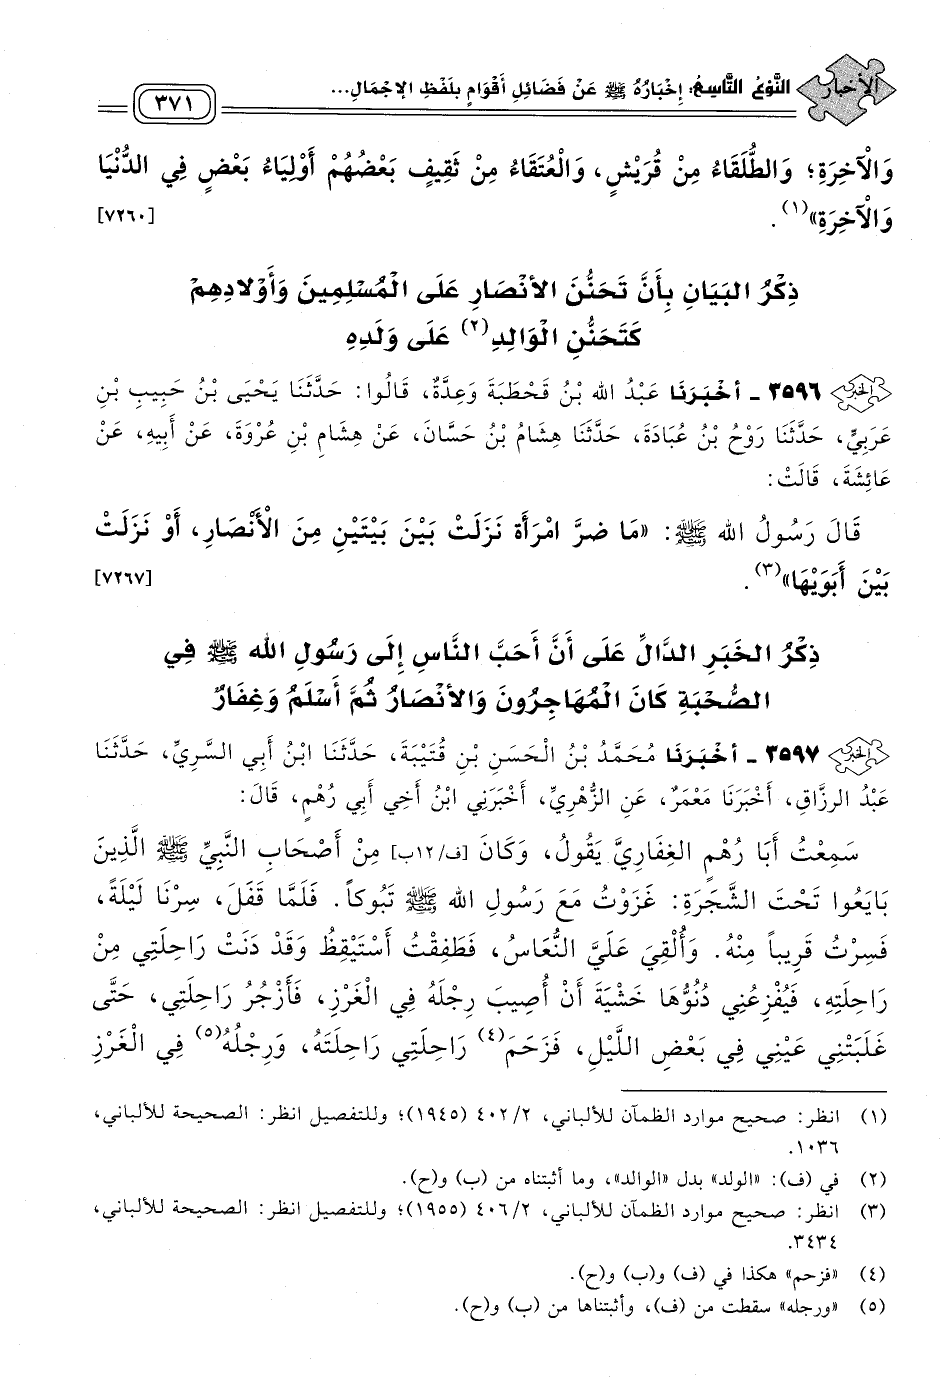 الأخبار
النَّوْعُ التَّاسِعُ: إِخْبَارُهُ ﷺ عَنْ فَضَائِلِ أَقْوَامٍ بِلَفْظِ الإِجْمَالِ...
٣٧١
وَالْآخِرَةِ؛ وَالطُّلَقَاءُ مِنْ قُرَيْشٍ، وَالْعُتَقَاءُ مِنْ ثَقِيفٍ بَعْضُهُمْ أَوْلِيَاءُ بَعْضٍ فِي الدُّنْيَا
وَالْآخِرَةِ»(١). [٧٢٦٠]
ذِكْرُ البَيَانِ بِأَنَّ تَحَنُّنَ الأَنْصَارِ عَلَى الْمُسْلِمِينَ وَأَوْلَادِهِمْ
كَتَحَنُّنِ الْوَالِدِ(٢) عَلَى وَلَدِهِ
٣٥٩٦ - أَخْبَرَنَا عَبْدُ الله بْنُ قَحْطَبَةَ وَعِدَّةٌ، قَالُوا: حَدَّثَنَا يَحْيَى بْنُ حَبِيبِ بْنِ
عَرَبِيٍّ، حَدَّثَنَا رَوْحُ بْنُ عُبَادَةَ، حَدَّثَنَا هِشَامُ بْنُ حَسَّانَ، عَنْ هِشَامِ بْنِ عُرْوَةَ، عَنْ أَبِيهِ، عَنْ
عَائِشَةَ، قَالَتْ:
قَالَ رَسُولُ الله ﷺ: «مَا ضرَّ امْرَأَة نَزَلَتْ بَيْنَ بَيْتَيْنِ مِنَ الْأَنْصَارِ، أَوْ نَزَلَتْ
بَيْنَ أَبَوَيْهَا»(٣). [٧٢٦٧]
ذِكْرُ الخَبَرِ الدَّالِّ عَلَى أَنَّ أَحَبَّ النَّاسِ إِلَى رَسُولِ الله ﷺ فِي
الصُّحْبَةِ كَانَ الْمُهَاجِرُونَ وَالأَنْصَارُ ثُمَّ أَسْلَمُ وَغِفَارٌ
٣٥٩٧ - أَخْبَرَنَا مُحَمَّدُ بْنُ الْحَسَنِ بْنِ قُتَيْبَةَ، حَدَّثَنَا ابْنُ أَبِي السَّرِيِّ، حَدَّثَنَا
عَبْدُ الرزَّاقِ، أَخْبَرَنَا مَعْمَرٌ، عَنِ الزُّهْرِيِّ، أَخْبَرَنِي ابْنُ أَخِي أَبِي رُهْمٍ، قَالَ:
سَمِعْتُ أَبَا رُهْمٍ الغِفَارِيَّ يَقُولُ، وَكَانَ [ف/١٢ب] مِنْ أَصْحَابِ النَّبِيِّ ﷺ الَّذِينَ
بَايَعُوا تَحْتَ الشَّجَرَةِ: غَزَوْتُ مَعَ رَسُولِ الله ﷺ تَبُوكاً. فَلَمَّا قَفَلَ، سِرْنَا لَيْلَةً،
فَسِرْتُ قَرِيباً مِنْهُ. وَأُلْقِيَ عَلَيَّ النُّعَاسُ، فَطَفِقْتُ أَسْتَيْقِظُ وَقَدْ دَنَتْ رَاحِلَتِي مِنْ
رَاحِلَتِهِ، فَيُفْزِعُنِي دُنُوُّهَا خَشْيَةَ أَنْ أُصِيبَ رِجْلَهُ فِي الْغَرْزِ، فَأَزْجُرُ رَاحِلَتِي، حَتَّى
غَلَبَتْنِي عَيْنِي فِي بَعْضِ اللَّيْلِ، فَزَحَمَ(٤) رَاحِلَتِي رَاحِلَتَهُ، وَرِجْلُهُ(٥) فِي الْغَرْزِ
(١) انظر: صحيح موارد الظمآن للألباني، ٤٠٢/٢ (١٩٤٥)؛ وللتفصيل انظر: الصحيحة للألباني،
١٠٣٦.
(٢) في (ف): «الولد» بدل «الوالد»، وما أثبتناه من (ب) و(ح).
(٣) انظر: صحيح موارد الظمآن للألباني، ٤٠٦/٢ (١٩٥٥)؛ وللتفصيل انظر: الصحيحة للألباني،
٣٤٣٤.
(٤) «فزحم» هكذا في (ف) و(ب) و(ح).
(٥) «ورجله» سقطت من (ف)، وأثبتناها من (ب) و(ح).